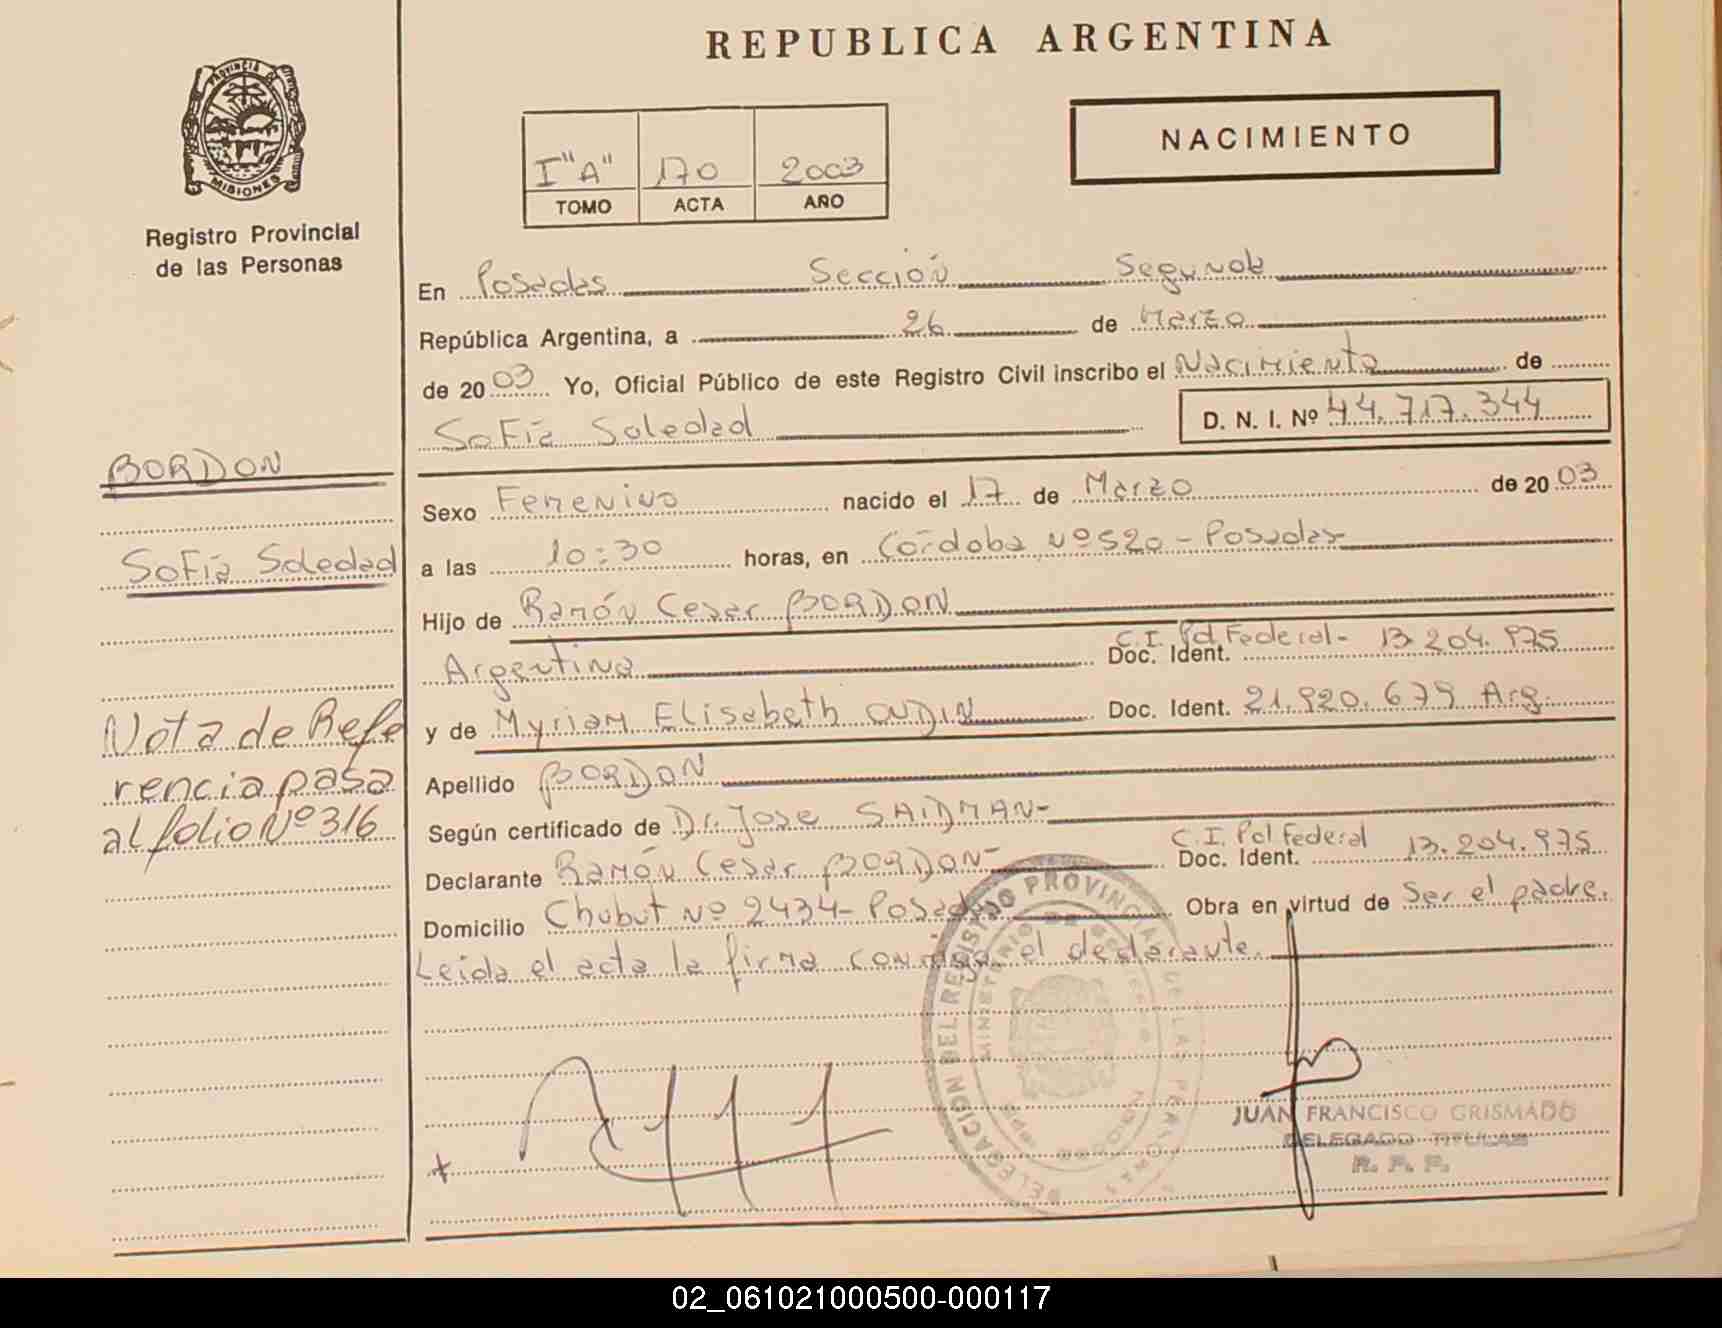 REPUBLICA ARGENTINA
PROVINCIA DE
MISIONES
Registro Provincial
de las Personas
NACIMIENTO
I "A" 170 2003
TOMO ACTA AÑO
En Posadas Sección Segunda
República Argentina, a 26 de Marzo
de 2003 Yo, Oficial Público de este Registro Civil inscribo el Nacimiento de
Sofía Soledad D. N. I. Nº 44.717.344
BORDON
Sofía Soledad
Sexo Femenino nacido el 17 de Marzo de 2003
a las 10:30 horas, en Córdoba Nº 520 - Posadas
Hijo de Ramón Cesar BORDON
Argentina C.I. Pol. Federal - 13.204.975
Doc. Ident.
y de Myriam Elisabeth OUDIN Doc. Ident. 21.920.679 Arg.
Apellido BORDON
Según certificado de Dr. Jose SAIDMAN-
Declarante Ramón Cesar BORDON- C.I. Pol Federal 13.204.975
Doc. Ident.
Domicilio Chubut Nº 2434- Posadas Obra en virtud de Ser el padre.
Leida el acta la firma conmigo el declarante.
Nota de Refe
rencia pasa
al folio Nº 316
DELEGACION DEL REGISTRO PROVINCIAL DE LAS PERSONAS
MINISTERIO DE GOBIERNO
JUAN FRANCISCO GRISMADO
DELEGADO TITULAR
R. P. P.
02_061021000500-000117